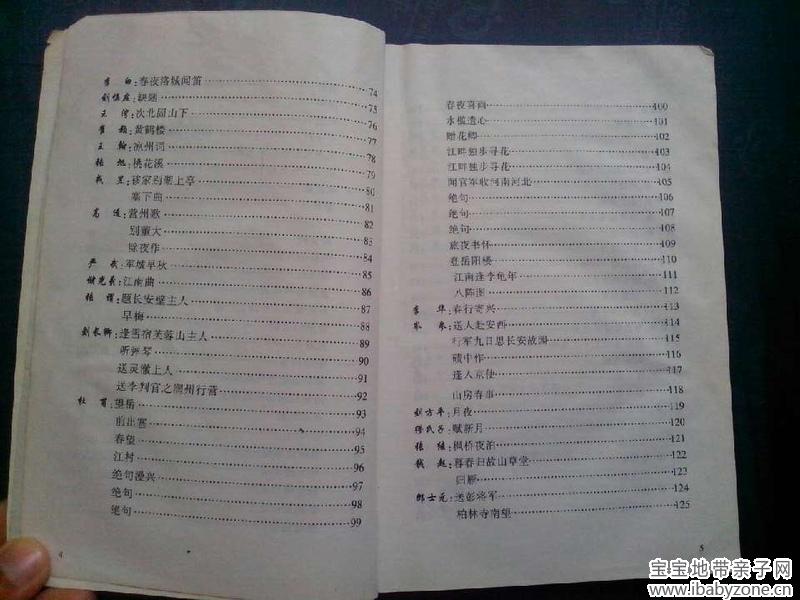 李 白:春夜洛城闻笛 74
刘慎虚:缺题 75
王 湾:次北固山下 76
崔 颢:黄鹤楼 77
王 翰:凉州词 78
张 旭:桃花溪 79
戎 昱:移家别湖上亭 80
塞下曲 81
高 适:营州歌 82
别董大 83
除夜作 84
严 武:军城早秋 85
江南曲 86
张 谓:题长安壁主人 87
早梅 88
刘长卿:逢雪宿芙蓉山主人 89
听弹琴 90
送灵澈上人 91
送李判官之润州行营 92
杜 甫:望岳 93
前出塞 94
春望 95
江村 96
绝句漫兴 97
绝句 98
绝句 99
4
春夜喜雨 100
水槛遣心 101
赠花卿 102
江畔独步寻花 103
江畔独步寻花 104
闻官军收河南河北 105
绝句 106
绝句 107
绝句 108
旅夜书怀 109
登岳阳楼 110
江南逢李龟年 111
八阵图 112
李 华:春行寄兴 113
岑 参:送人赴安西 114
行军九日思长安故园 115
碛中作 116
逢入京使 117
山房春事 118
刘方平:月夜 119
缪氏子:赋新月 120
张 继:枫桥夜泊 121
钱 起:暮春归故山草堂 122
归雁 123
郎士元:送彭将军 124
柏林寺南望 125
5
宝宝地带亲子网
www.ibabyzone.cn